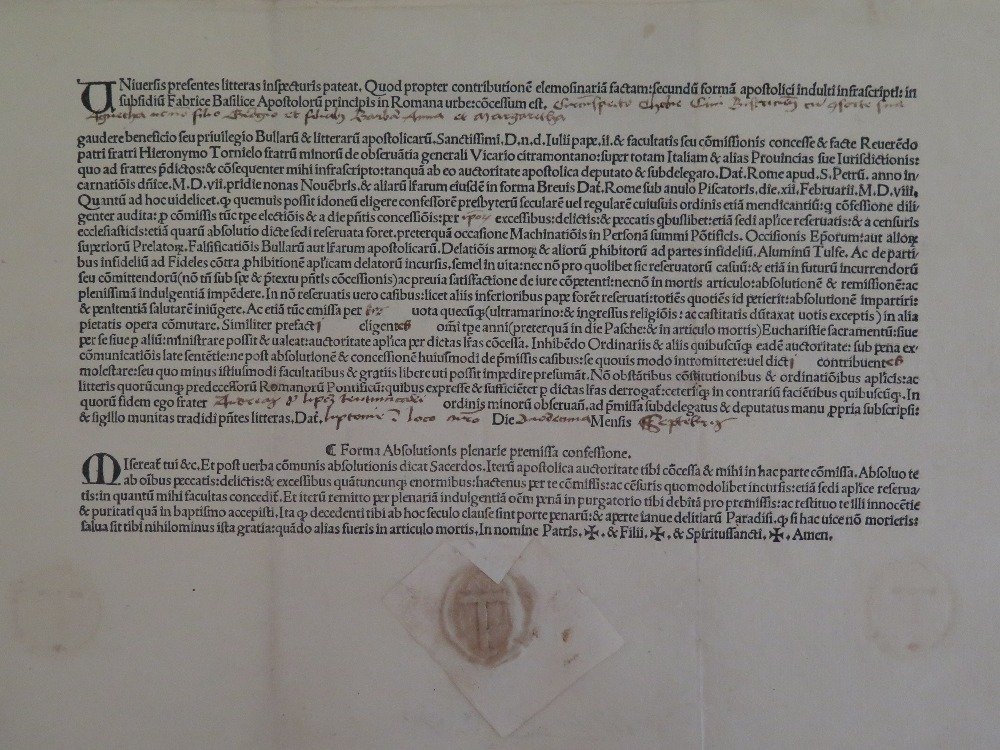 UNiuersis presentes litteras inspecturis pateat. Quod propter contributionē elemosinariā factam: secundū formā apostolici indulti infrascripti: in
subsidiū Fabrice Basilice Apostolorū principis in Romana urbe: cōcessum est.
filio et Barbara Anna et Margaretha
gaudere beneficio seu priuilegio Bullarū & litterarū apostolicarū. Sanctissimi. D.n.d. Iulii pape .ii. & facultatis seu cōmissionis concesse & facte Reuerēdo
patri fratri Hieronymo Tornielo fratrū minorū de obseruātia generali Vicario citramontano: super totam Italiam & alias Prouincias sue Iurisdictionis:
quo ad fratres p̄dictos: & cōsequenter mihi infrascripto: tanquā ab eo auctoritate apostolica deputato & subdelegato. Dat. Rome apud. S. Petrū. anno in-
carnatiōis dn̄ice. M.D.vii. pridie nonas Nouēbris. & aliarū lr̄arum eiusdē in forma Breuis Dat. Rome sub anulo Piscatoris. die. xii. Februarii. M.D.viii.
Quantū ad hoc uidelicet. ꝙ quemuis possit idoneū eligere confessorē presbyterū secularē uel regularē cuiusuis ordinis etiā mendicantiū: q̄ cōfessione dili-
genter audita: p̱ cōmissis tūc tp̄e electiōis & a die pn̄tis concessiōis: per excessibus: delictis: & peccatis qbuslibet: etiā sedi apl̄ice reseruatis: & a censuris
ecclesiasticis: etiā quarū absolutio dicte sedi reseruata foret. preterquā occasione Machinatiōis in Personā summi Pōtificis. Occisionis Ep̄orum: aut alioꝝ
superiorū Prelatoꝝ. Falsificatiōis Bullarū aut lr̄arum apostolicarū. Delatiōis armoꝝ & aliorū p̱hibitorū ad partes infideliū. Aluminū Tulfe. Ac de parti-
bus infideliū ad Fideles cōtra p̱hibitionē apl̄icam delatorū incursis, semel in uita: nec nō pro quolibet sic reseruatorū casuū: & etiā in futurū incurrendorū
seu cōmittendorū (nō tn̄ sub spe & p̄textu pn̄tis cōcessionis) ac preuia satisfactione de iure cōpetenti: necnō in mortis articulo: absolutionē & remissionē: ac
plenissimā indulgentiā impēdere. In nō reseruatis uero casibus: licet aliis inferioribus pape forēt reseruati: totiēs quotiēs id petierit: absolutionē impartiri:
& penitentiā salutarē iniūgere. Ac etiā tūc emissa per uota quecūꝙ (ultramarino: & ingressus religiōis: ac castitatis dūtaxat uotis exceptis) in alia
pietatis opera cōmutare. Similiter prefacti eligentes om̄i tp̄e anni (preterquā in die Pasche: & in articulo mortis) Eucharistie sacramentū: siue
per se siue p̱ aliū: ministrare possit & ualeat: auctoritate apl̄ica per dictas lr̄as cōcessa. Inhibēdo Ordinariis & aliis quibuscūꝙ eadē auctoritate: sub pena ex-
cōmunicatiōis late sentētie: ne post absolutionē & concessionē huiusmodi de p̄missis casibus: se quouis modo intromittere: uel dicti contribuentes
molestare: seu quo minus istiusmodi facultatibus & gratiis libere uti possit impedire presumāt. Nō obstātibus cōstitutionibus & ordinatiōibus apl̄icis: ac
litteris quorūcunꝙ predecessorū Romanorū Pontificū: quibus expresse & sufficiēter p̱ dictas lr̄as derrogat̃: ceterisꝙ in contrariū faciētibus quibuscūꝙ. In
quorū fidem ego frater ordinis minorū obseruan̄. ad p̄missa subdelegatus & deputatus manu p̱pria subscripsi:
& sigillo munitas tradidi pn̄tes litteras. Dat. loco Die duodecima Mensis Septebris
¶ Forma Absolutionis plenarie premissa confessione.
MIsereat̃ tui &c. Et post uerba cōmunis absolutionis dicat Sacerdos. Iterū apostolica auctoritate tibi cōcessa & mihi in hac parte cōmissa. Absoluo te
ab oībus peccatis: delictis: & excessibus quātuncunꝙ enormibus: hactenus per te cōmissis: ac cēsuris quomodolibet incursis: etiā sedi apl̄ice reserua-
tis: in quantū mihi facultas concedit̃. Et iterū remitto per plenariā indulgentiā oēm penā in purgatorio tibi debitā pro premissis: ac restituo te illi innocētie
& puritati quā in baptismo accepisti. Ita ꝙ decedenti tibi ab hoc seculo clause sint porte penarū: & aperte ianue delitiarū Paradisi. ꝙ si hac uice nō morieris:
salua sit tibi nihilominus ista gratia: quādo alias fueris in articulo mortis. In nomine Patris. ✠. & Filii. ✠. & Spiritussancti. ✠. Amen.